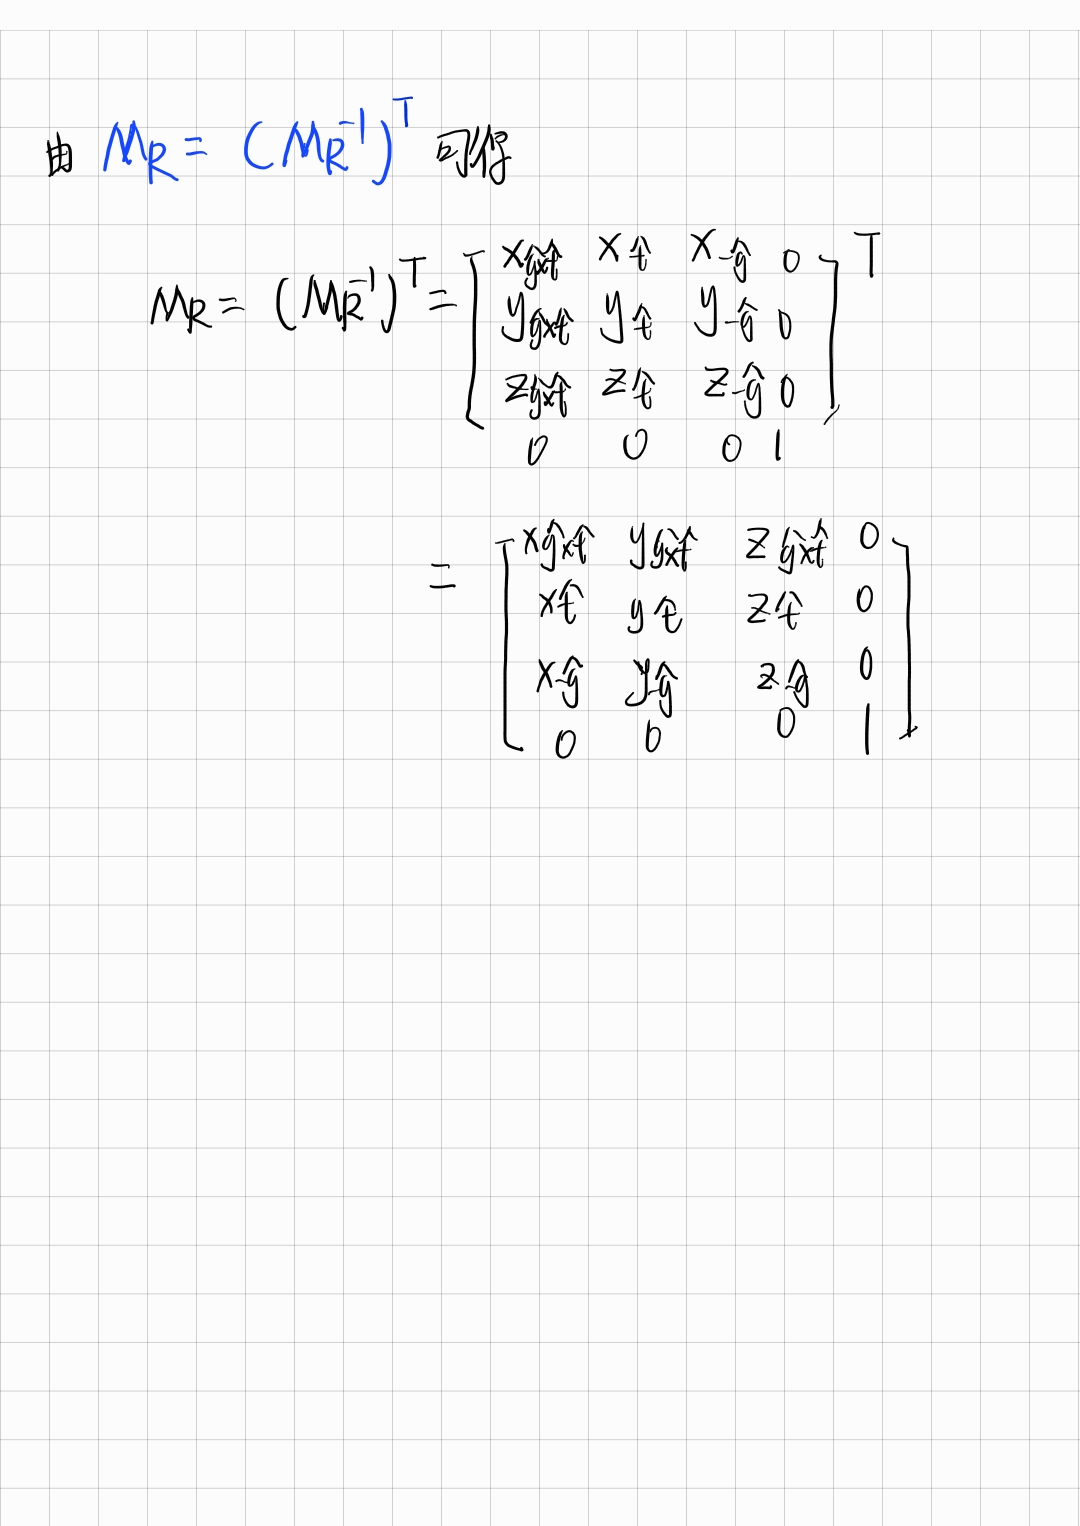 由 M_R = (M_R^{-1})^T 可得
M_R = (M_R^{-1})^T = \begin{bmatrix} x_{\hat{g}×\hat{t}} & x_{\hat{t}} & x_{-\hat{g}} & 0 \\ y_{\hat{g}×\hat{t}} & y_{\hat{t}} & y_{-\hat{g}} & 0 \\ z_{\hat{g}×\hat{t}} & z_{\hat{t}} & z_{-\hat{g}} & 0 \\ 0 & 0 & 0 & 1 \end{bmatrix}^T
= \begin{bmatrix} x_{\hat{g}×\hat{t}} & y_{\hat{g}×\hat{t}} & z_{\hat{g}×\hat{t}} & 0 \\ x_{\hat{t}} & y_{\hat{t}} & z_{\hat{t}} & 0 \\ x_{-\hat{g}} & y_{-\hat{g}} & z_{-\hat{g}} & 0 \\ 0 & 0 & 0 & 1 \end{bmatrix}